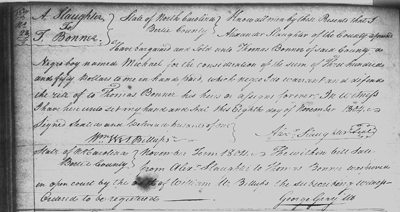 A. Slaughter
To
T. Bonner
State of North Carolina
Bertie County
Know all men by these Presents that I
Alexander Slaughter of the County aforesaid
Have bargained and Sold unto Thomas Bonner of said County a
Negro boy named Michael for the consideration of the sum of Three hundred
and fifty Dollars to me in hand paid, which negro I warrant and defend
the rite of to Thomas Bonner his heirs
I have hereunto set my hand and seal this Eighth day of November
Signed sealed and delivered in presence of
Wm W Billups
Alexr Slaughter Seal
State of No Carolina
Bertie County
November Term The within bill Sale
from Alexr Slaughter to Thomas Bonner was proved
in open court by the oath of William W. Billups the subscribing witness
Ordered to be registered
George Gray